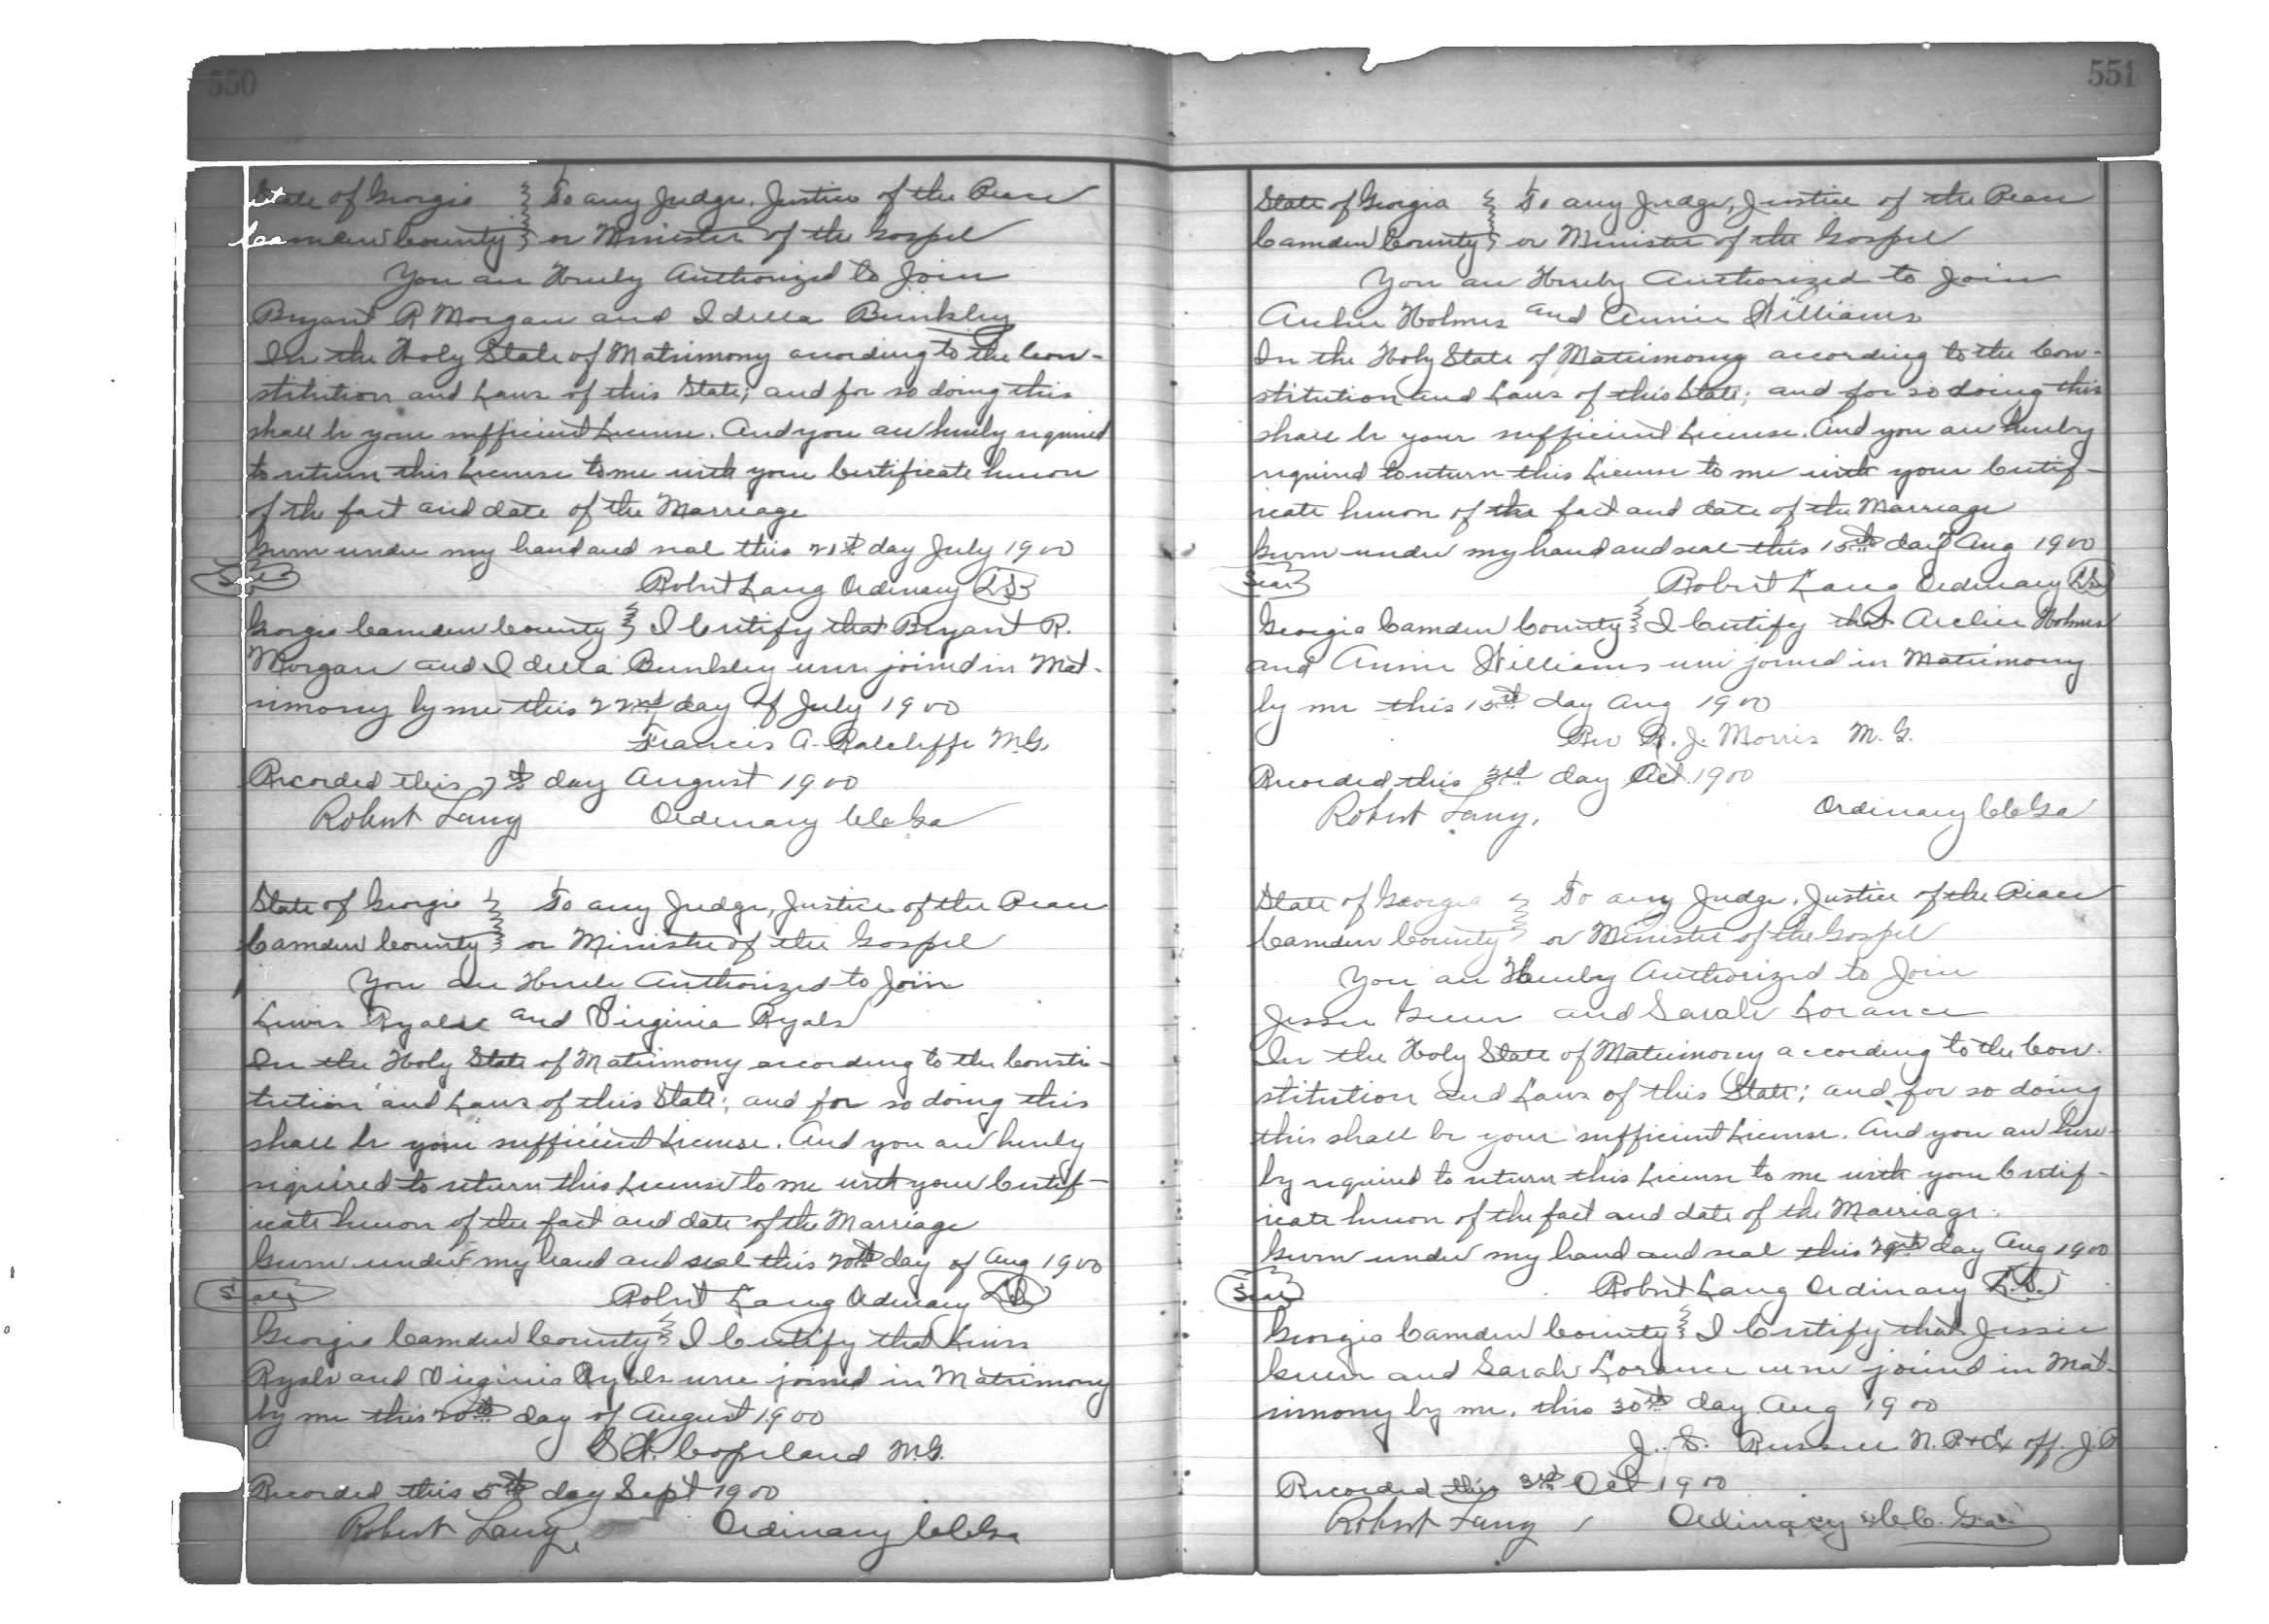 550
State of Georgia To any Judge, Justice of the Peace
Camden County or Minister of the Gospel
You are Hereby Authorized to Join
Bryant R Morgan and Idella Bunkley
In the Holy State of Matrimony according to the Con-
stitution and Laws of this State; and for so doing this
shall be your sufficient License. And you are hereby required
to return this License to me with your Certificate hereon
of the fact and date of the Marriage
Given under my hand and seal this 21st day July 1900
Seal Robert Lang Ordinary L.S.
Georgia Camden County I Certify that Bryant R.
Morgan and Idella Bunkley were joined in Mat-
rimony by me this 22nd day of July 1900
Francis A. Ratcliffe M.G.
Recorded this 7th day August 1900
Robert Lang Ordinary CC Ga
State of Georgia To any Judge, Justice of the Peace
Camden County or Minister of the Gospel
You are Hereby Authorized to Join
Lewis Ryals and Virginia Ryals
In the Holy State of Matrimony according to the Consti-
tution and Laws of this State; and for so doing this
shall be your sufficient License. And you are hereby
required to return this License to me with your Certif-
icate hereon of the fact and date of the Marriage
Given under my hand and seal this 20th day of Aug 1900
Seal Robert Lang Ordinary L.S.
Georgia Camden County I Certify that Lewis
Ryals and Virginia Ryals were joined in Matrimony
by me this 20th day of August 1900
Copeland M.G.
Recorded this 5th day Sept 1900
Robert Lang, Ordinary CC Ga
551
State of Georgia To any Judge, Justice of the Peace
Camden County or Minister of the Gospel
You are Hereby Authorized to Join
Archie Holmes and Annie Williams
In the Holy State of Matrimony according to the Con-
stitution and Laws of this State; and for so doing this
shall be your sufficient License. And you are hereby
required to return this License to me with your Certif-
icate hereon of the fact and date of the Marriage
Given under my hand and seal this 15th day Aug 1900
Seal Robert Lang Ordinary L.S.
Georgia Camden County I Certify that Archie Holmes
and Annie Williams were joined in Matrimony
by me this 15th day Aug 1900
Rev R. J. Morris M. G.
Recorded this 3rd day Oct. 1900
Robert Lang, Ordinary CC Ga
State of Georgia To any Judge, Justice of the Peace
Camden County or Minister of the Gospel
You are Hereby Authorized to Join
Jessie Green and Sarah Lorance
In the Holy State of Matrimony according to the Con-
stitution and Laws of this State; and for so doing
this shall be your sufficient License. And you are here-
by required to return this License to me with your Certif-
icate hereon of the fact and date of the Marriage.
Given under my hand and seal this 29th day Aug 1900
Seal Robert Lang Ordinary L.S.
Georgia Camden County I Certify that Jessie
Green and Sarah Lorance were joined in Mat-
rimony by me, this 30th day Aug 1900
J. S. Russell N.P. & Ex off. J.P
Recorded this 3rd Oct 1900
Robert Lang, Ordinary C.C. Ga